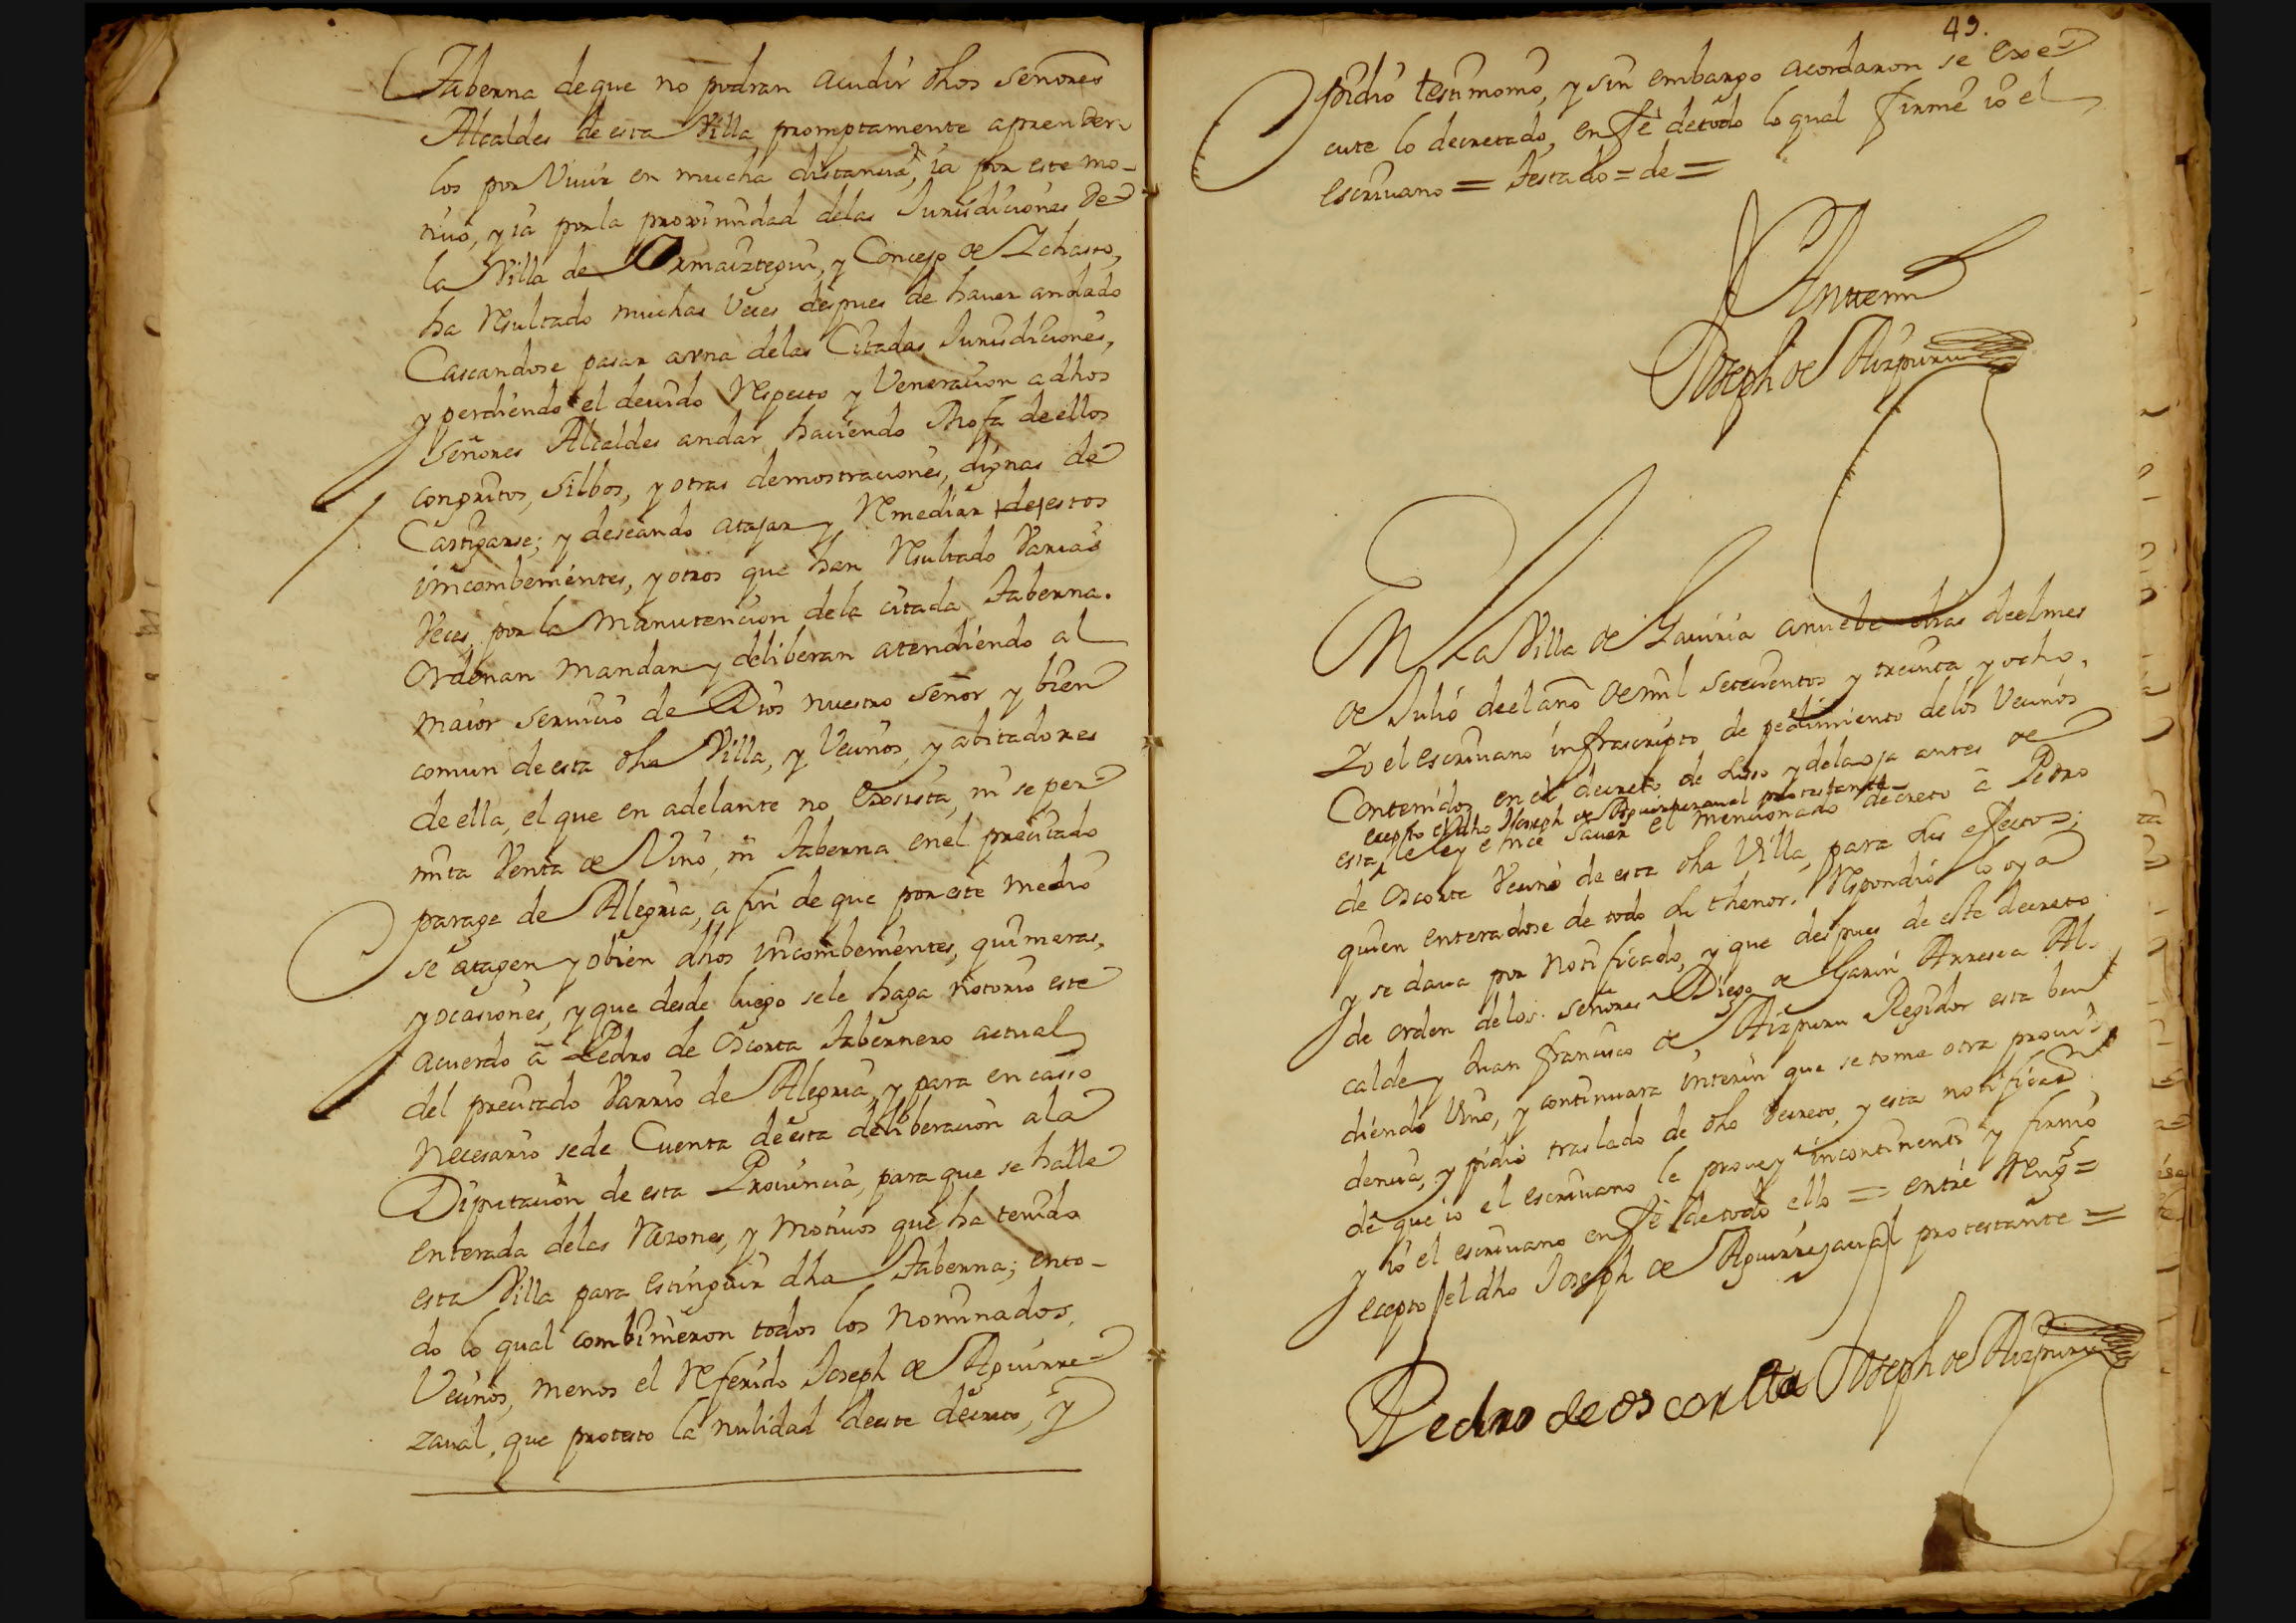 Taberna deque no podran acudir dhos señores
Alcaldes de esta Villa promptamente aprender
los por Viuir en mucha distancia, ia por este mo-
tiuo, y ia por la proximidad delas Jurisdiciones de
la Villa de Ormaiztegui, y Concejo de Ichasso,
ha Resultado muchas Veces despues de hauer andado
Cascandose pasar avna delas Citadas Jurisdiciones,
y perdiendo el deuido Respecto y Veneracion adhos
Señores Alcaldes andar haciendo Mofa deellos
congritos, silbos, y otras demostraciones, dignas de
Castigarse; y deseando atajar y Remediar de estos
imcombenientes, y otros que han Resultado Varias
Veces, por la Manutencion dela citada Taberna.
Ordenan mandan y deliberan atendiendo al
maior seruicio de Dios nuestro señor y bien
comun de esta dha Villa, y Vecinos, y abitadores
de ella, el que en adelante no Exsista, ni se per
mita Venta de Vino, ni Taberna enel precitado
parage de Alegria, a fin de que por este medio
se atagen y obien dhos imcombenientes, quimeras,
y ocasiones, y que desde luego sele haga notorio este
acuerdo â Pedro de Osconta Tabernero actual
del precitado Varrio de Alegria, y para en casso
Necesario sede Cuenta de esta deliberacion ala
Diputacion de esta Prouincia, para que se halle
enterada delas Razones, y Motiuos que ha tenido
esta Villa para estinguir dha Taberna; ento-
do lo qual combinieron todos los Nominados
Vecinos, menos el Referido Joseph de Aguirre
zaual, que protesto la nulidad deeste decreto, y
49.
pidio testimonio, y sin embargo acordaron se Exe
cute lo decretado, en fe detodo lo qual firmé io el
escriuano = Testado = de =
Ante mi
Joseph de Aizpuru
En La Villa de Gauiria anuebe dias deelmes
de Julio deelaño demil setecientos y treinta y ocho,
Yo el escriuano infrascripto de pedimiento delos Vecinos
Contenidos en el decreto de suso y dela oja antes de
ecepto el dho Joseph de Aguirrezaual protestante
esta, le ley e hice sauer el mencionado decreto â Pedro
de Osconta Vecino de esta dha Villa, para sus efectos;
quien enteradose de todo su thenor. Respondio lo oya
y se daua por Notificado, y que despues de este decreto
de orden delos señores Diego de Garin Arresea Al-
calde y Juan francisco de Aizpuru Regidor esta ben
diendo Vino, y continuara interin que se tome otra proui
dencia, y pidio traslado de dho Decreto, y esta notificaz.
de que io el escriuano le prouey incontinenti y firmó
y io el escriuano en fe de todo ello = entre Reng.s =
ecepto el dho Joseph de Aguirrezaual protestante =
Pedro de os conta Joseph de Aizpuru